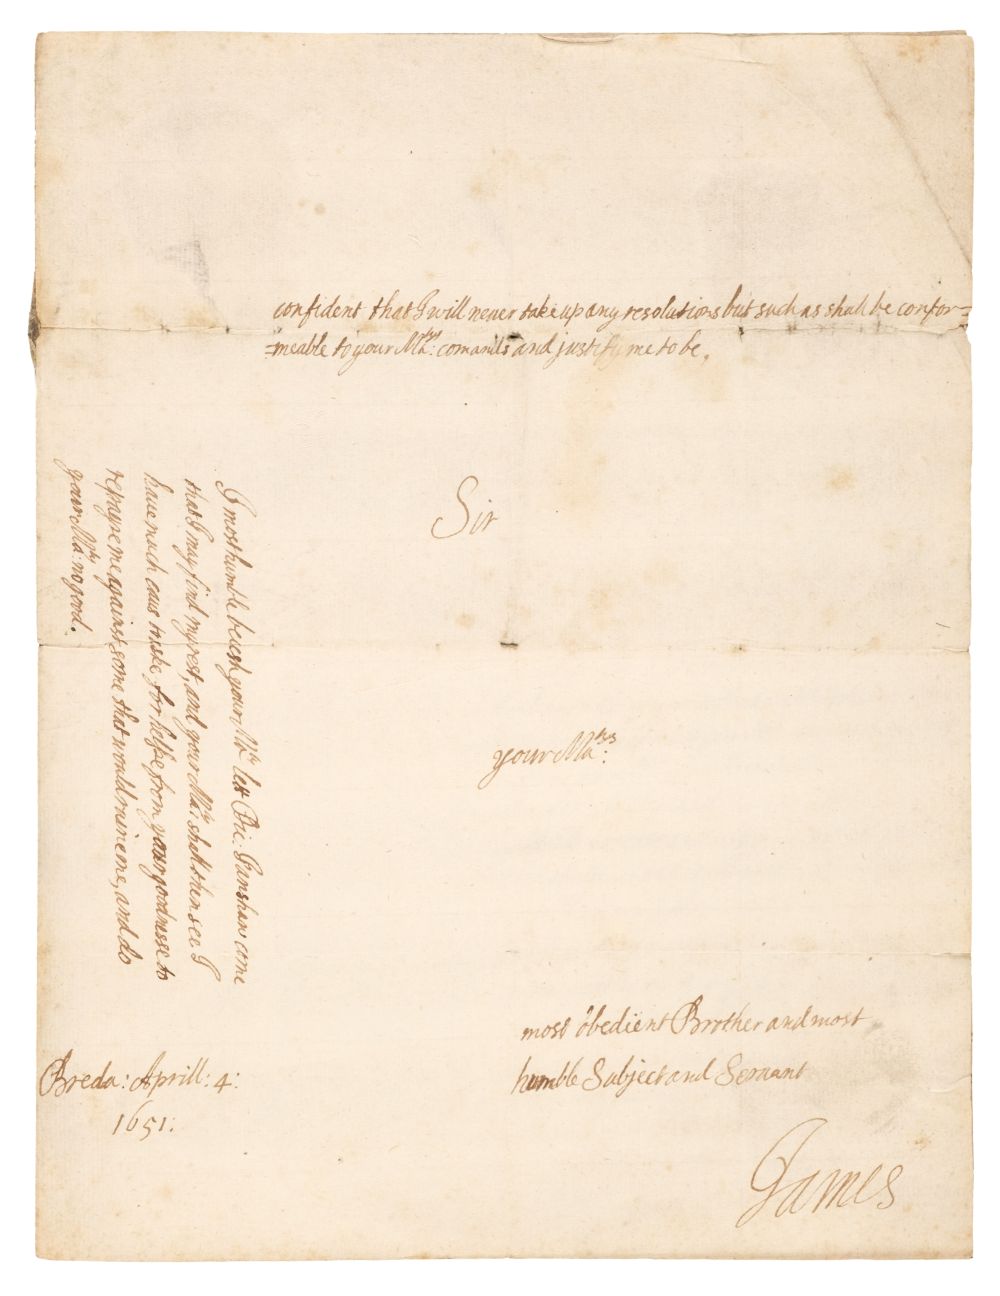 confident that I will never take up any resolutions but such as shall be confor=
=meable to your Ma:tys comands and justify me to be,
Sir
your Ma:tys
most obedient Brother and most
humble Subject and Servant
James
Breda: Aprill: 4:
1651:
I most humble beseech your Ma:ty let Dic: Fanshaw come
that I may find my rest, and your Ma:ty shall then see I
have much caus to aske for helpe from your goodnesse to
repayre me against some that would ruine me, and do
your Ma:ty no good.